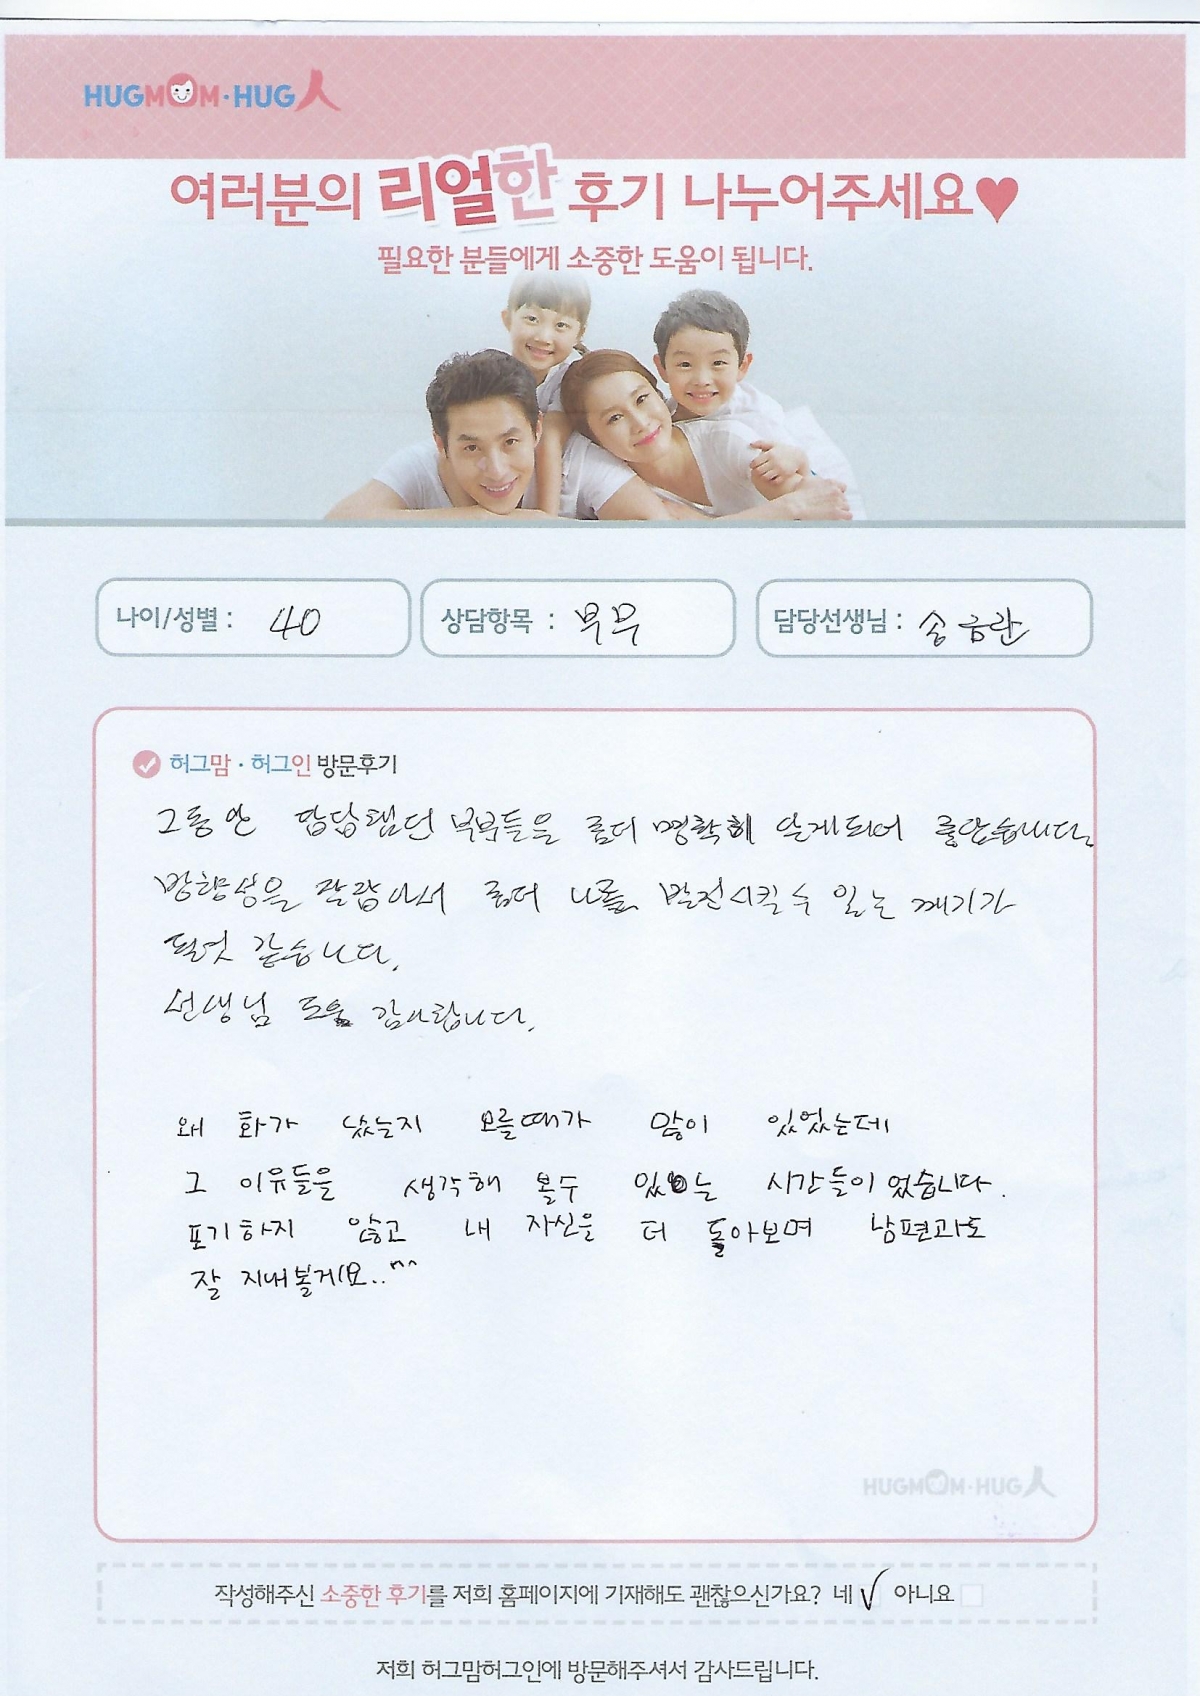 HUGMOM·HUG人
여러분의 리얼한 후기 나누어주세요♥
필요한 분들에게 소중한 도움이 됩니다.
나이/성별 : 40
상담항목 : 부부
담당선생님 : 송금란
허그맘·허그인 방문후기
그동안 답답했던 부분들을 좀더 명확히 알게되어 좋았습니다.
방향성을 잘잡아서 좀더 나를 발전시킬 수 있는 계기가
된것 같습니다.
선생님 도움 감사합니다.
왜 화가 났는지 모를때가 많이 있었는데
그 이유들을 생각해 볼수 있는 시간들이었습니다.
포기하지 않고 내 자신을 더 돌아보며 남편과도
잘 지내볼게요..^^
HUGMOM·HUG人
작성해주신 소중한 후기를 저희 홈페이지에 기재해도 괜찮으신가요? 네 √ 아니요
저희 허그맘허그인에 방문해주셔서 감사드립니다.